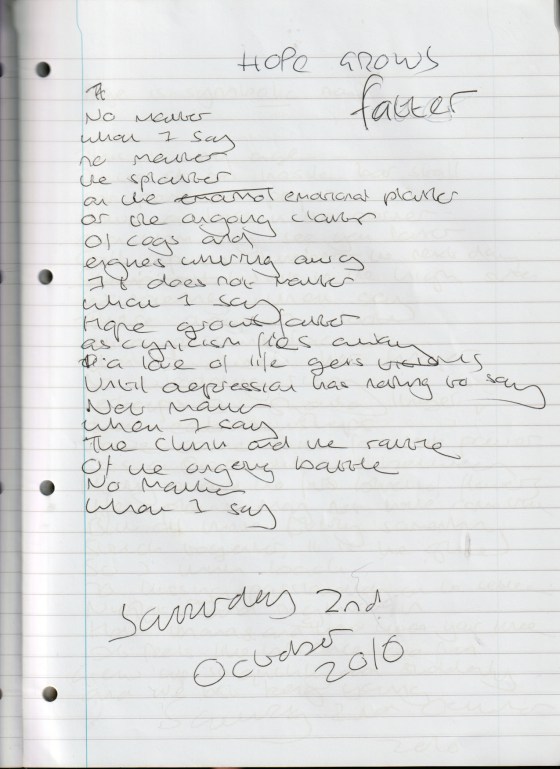 HOPE GROWS
fatter
No matter
what I say
no matter
the splatter
on the emotional platter
or the ongoing clatter
Of cogs and
engines whirring away
It does not matter
what I say
Hope grows fatter
as cynicism flies away
a love of life gets
Until depression has nothing to say
Not matter
what I say
The clunk and the rattle
Of the ongoing battle
No Matter
what I say
Saturday 2nd
October
2010